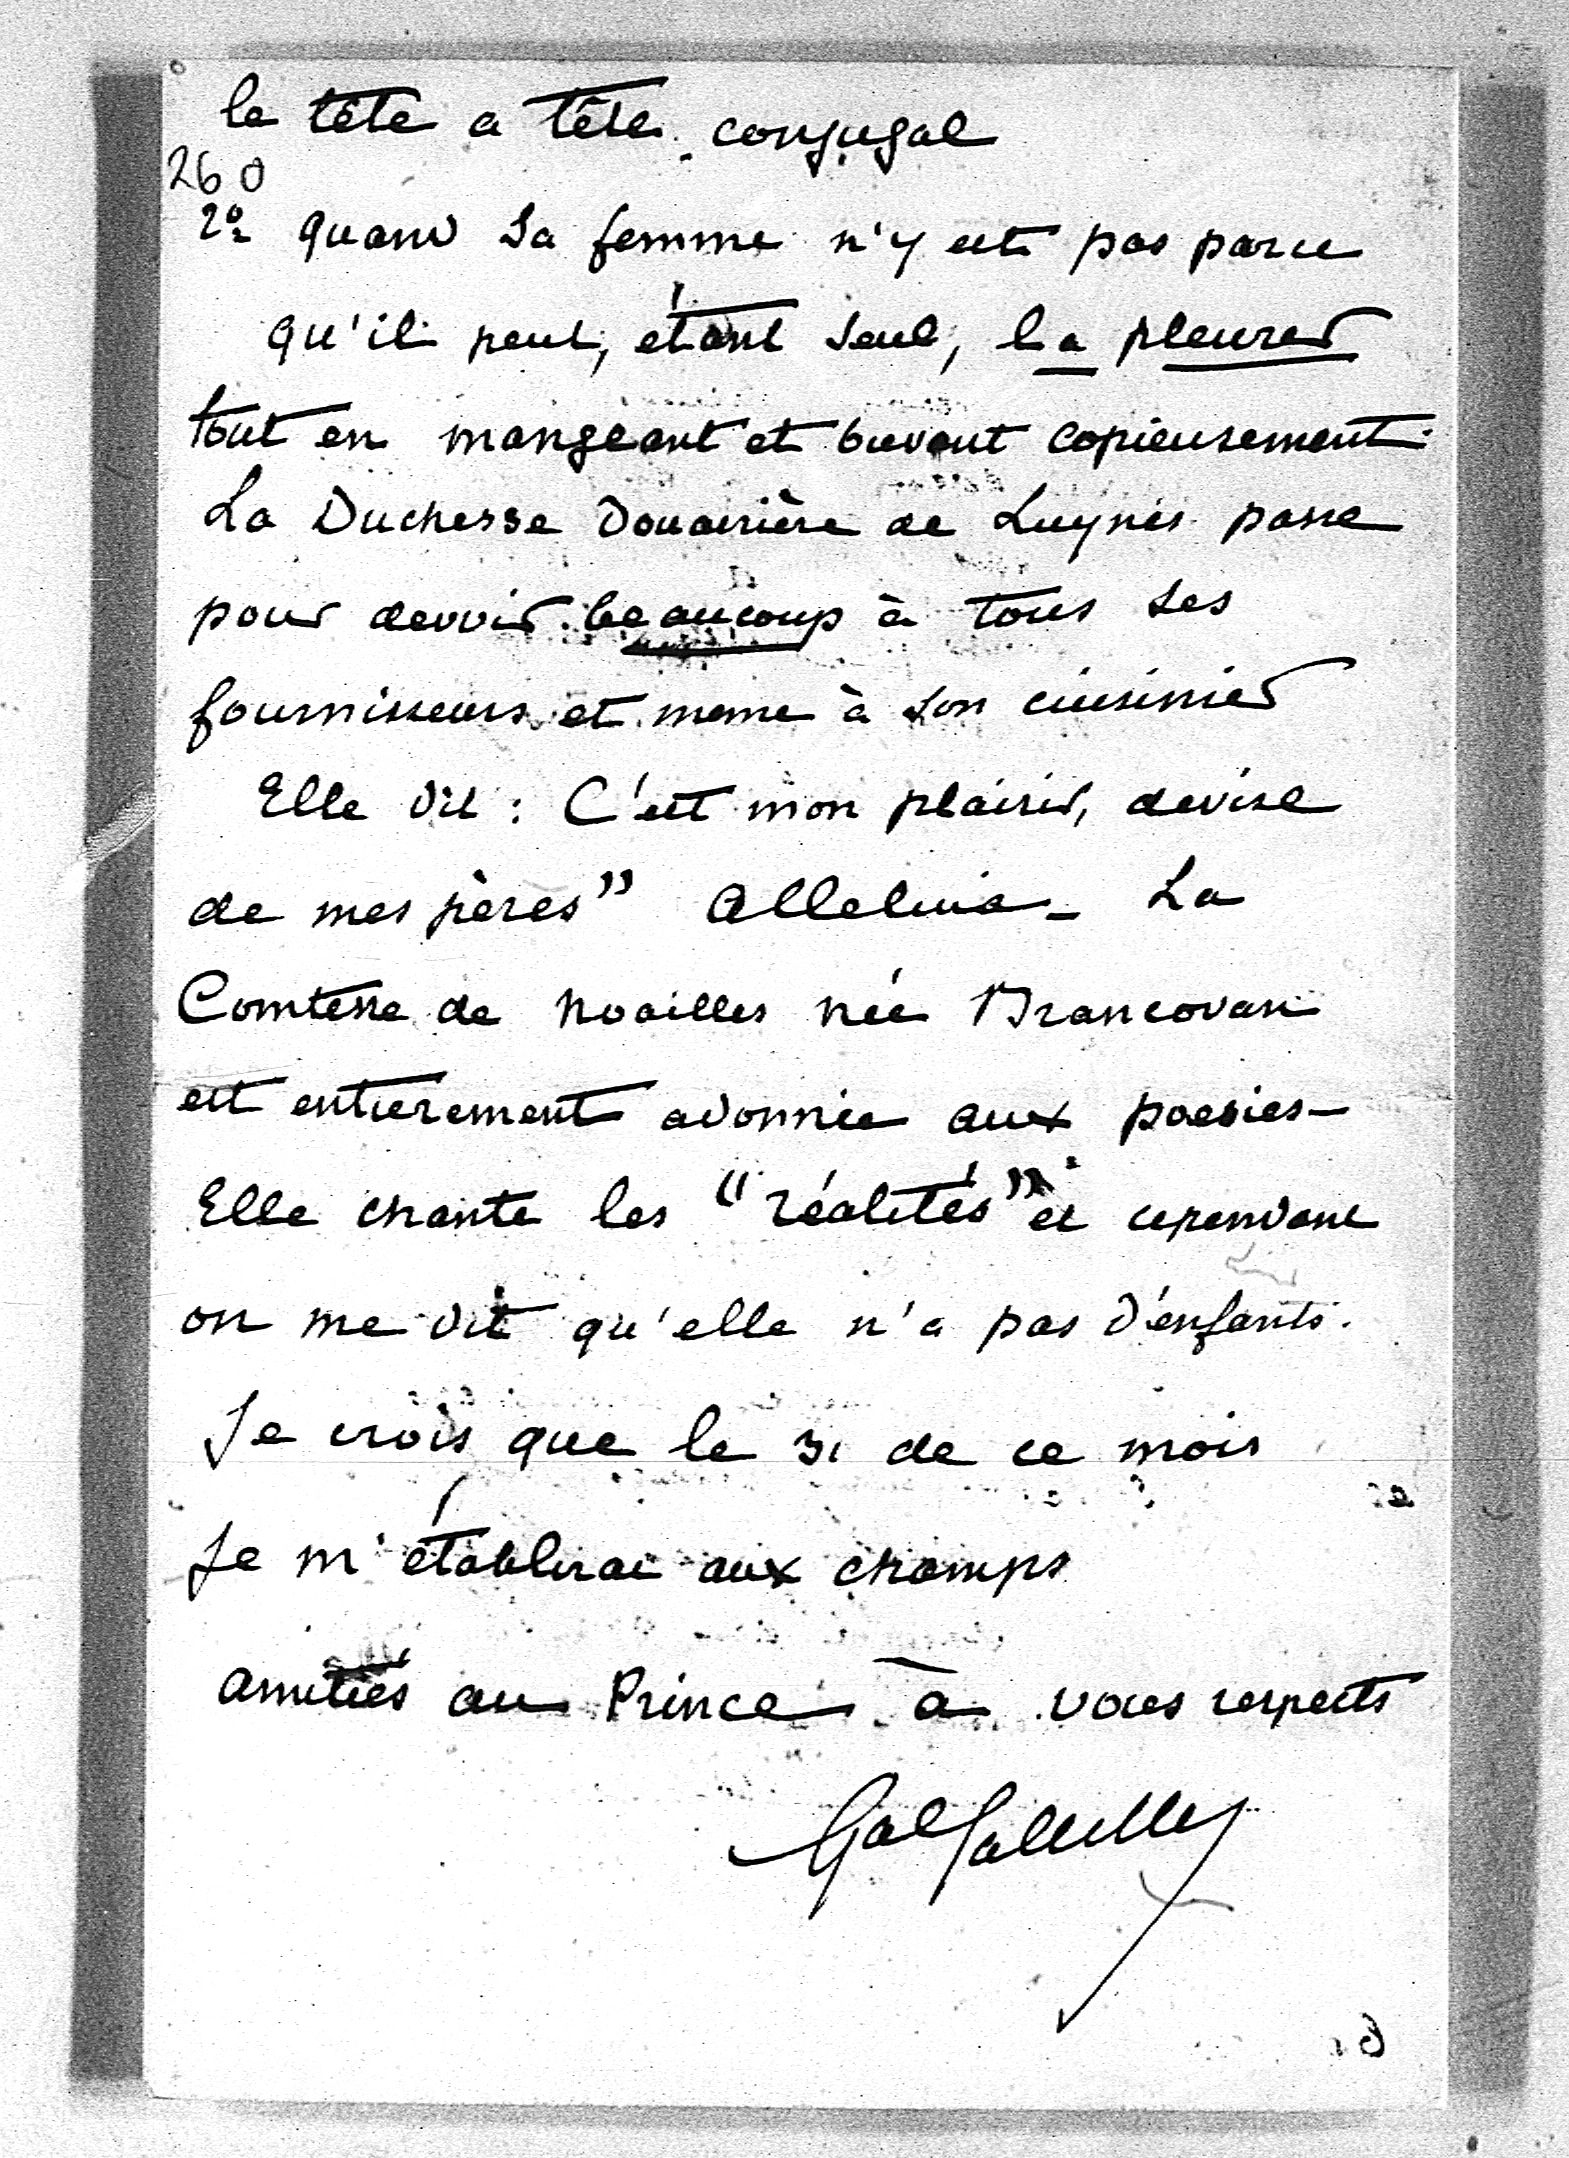 le tête a tête conjugal
260
2º quand sa femme n'y est pas parce
qu'il peut, étant seul, la pleurer
tout en mangeant et buvant copieusement.
La Duchesse Douairière de Luynes passe
pour devoir beaucoup à tous ses
fournisseurs et meme à son cuisinier
Elle dit : C'est mon plaisir, devise
de mes pères" Alleluia - La
Comtesse de Noailles née Brancovan
est entierement adonnée aux poesies -
Elle chante les "réalités" et cependant
on me dit qu'elle n'a pas d'enfants.
Je crois que le 31 de ce mois
je m'établirai aux champs
amitiés au Prince à vous respects
Gal Galliffet